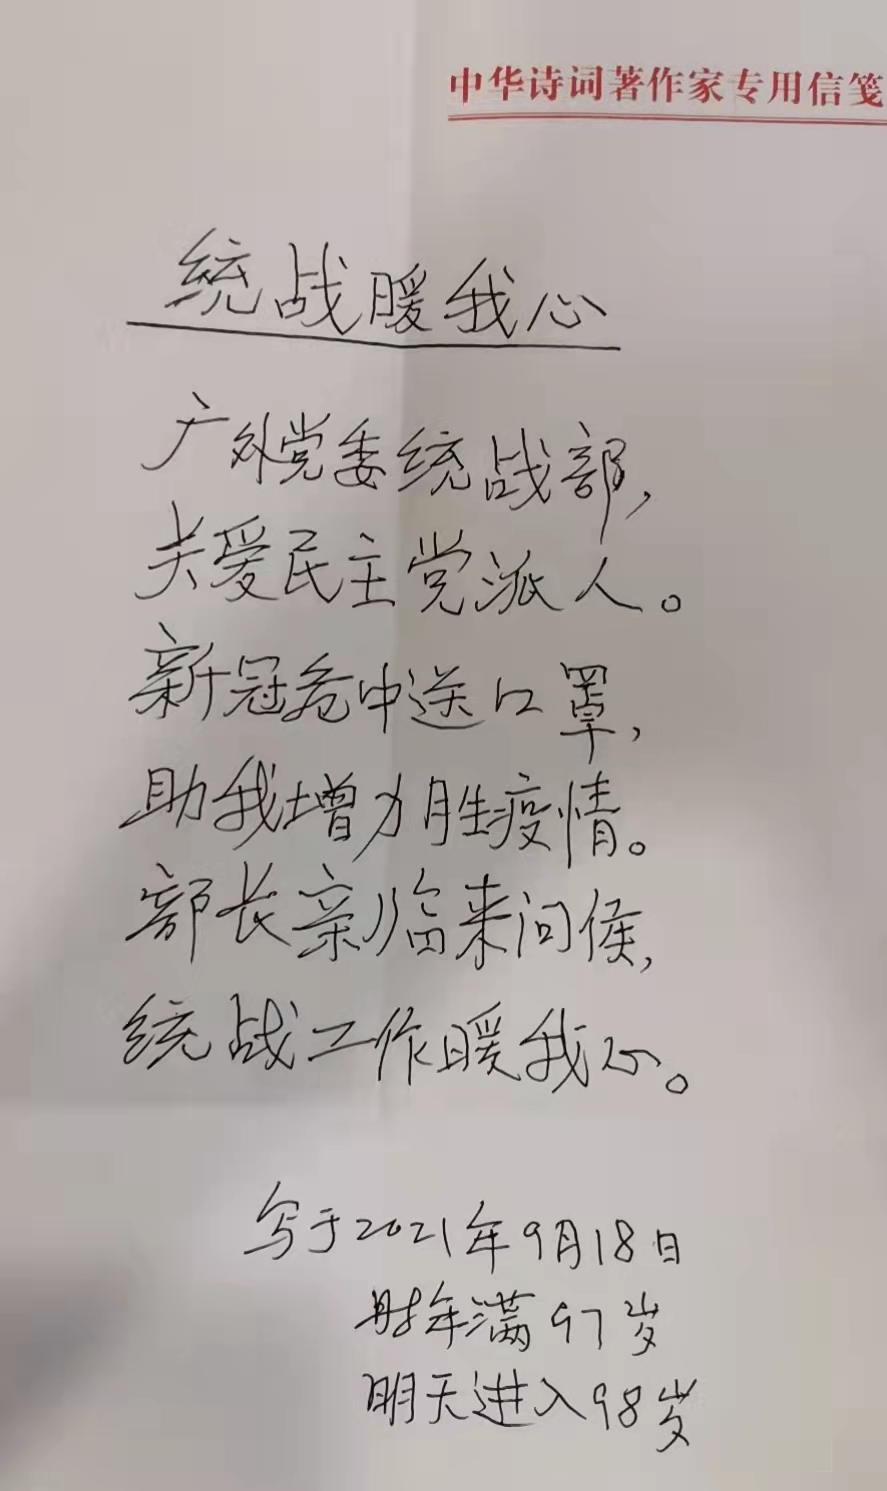 中华诗词著作家专用信笺
统战暖我心
广外党委统战部,
关爱民主党派人。
新冠危中送口罩,
助我增力胜疫情。
部长亲临来问候,
统战工作暖我心。
写于2021年9月18日
时年满97岁
明天进入98岁